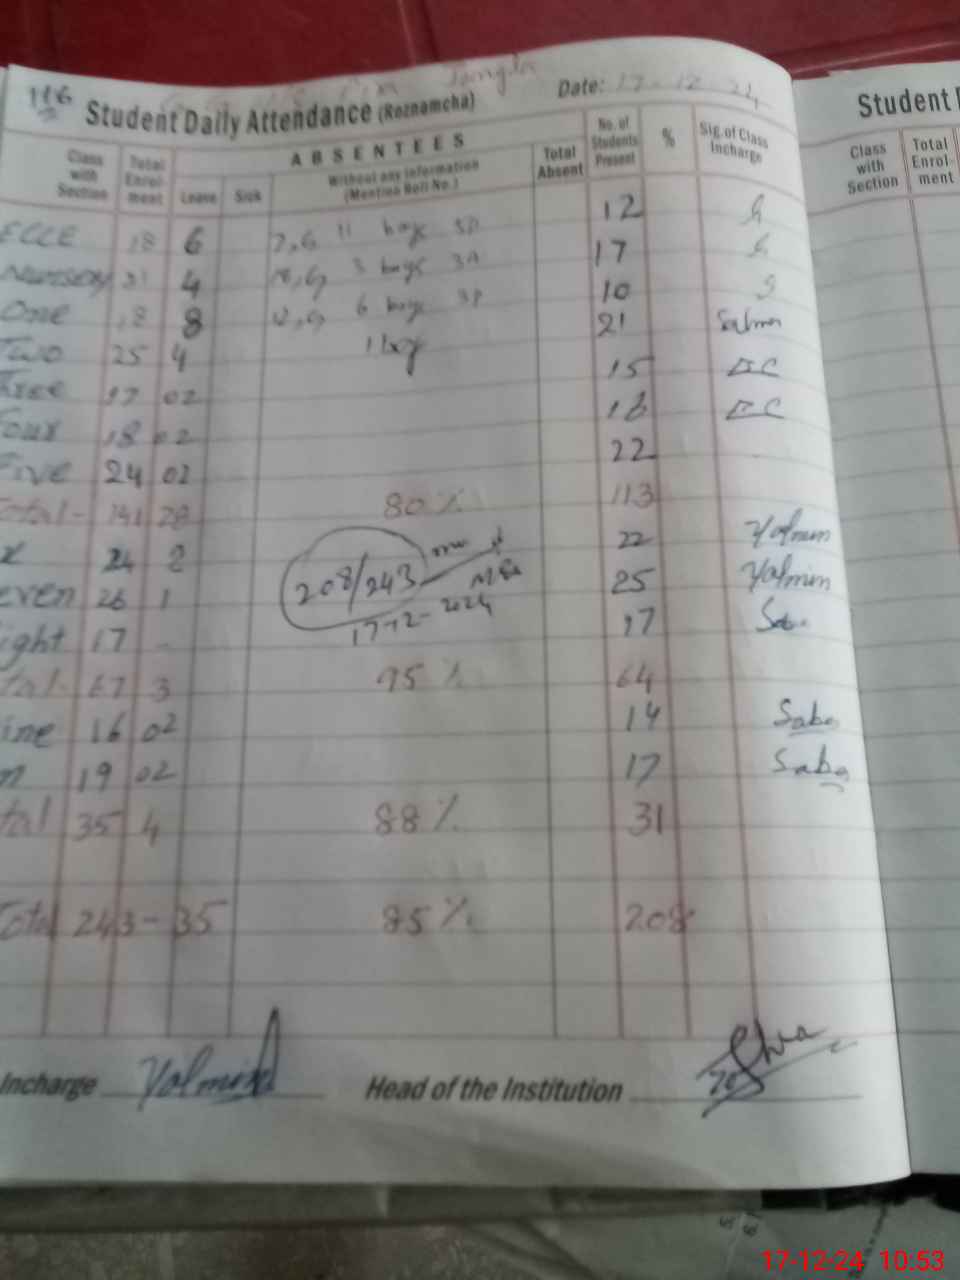 116
Date: 17-12-24
Student Daily Attendance (Roznamcha)
Student
Class with Section
Total Enrol-ment
ABSENTEES
Leave
Sick
Without any information (Mention Roll No.)
Total Absent
No. of Students Present
%
Sig. of Class Incharge
Class with Section
Total Enrol-ment
ECCE 18 6 11 boys 12
Nursery 21 4 3 boys 17
One 18 8 6 boys 10
Two 25 4 1 boy 21 Salma
Three 17 02 15
Four 18 02 16
Five 24 02 22
Total - 141 28 80% 113
24 2 22 Yalmin
even 26 1 208/243 25 Yalmin
ight 17 - 17-12-2024 17 Saba
tal - 67 3 95% 64
ine 16 02 14 Saba
n 19 02 17 Saba
tal 35 4 88% 31
Total 243 - 35 85% 208
Incharge Yalmin Head of the Institution
17-12-24 10.53